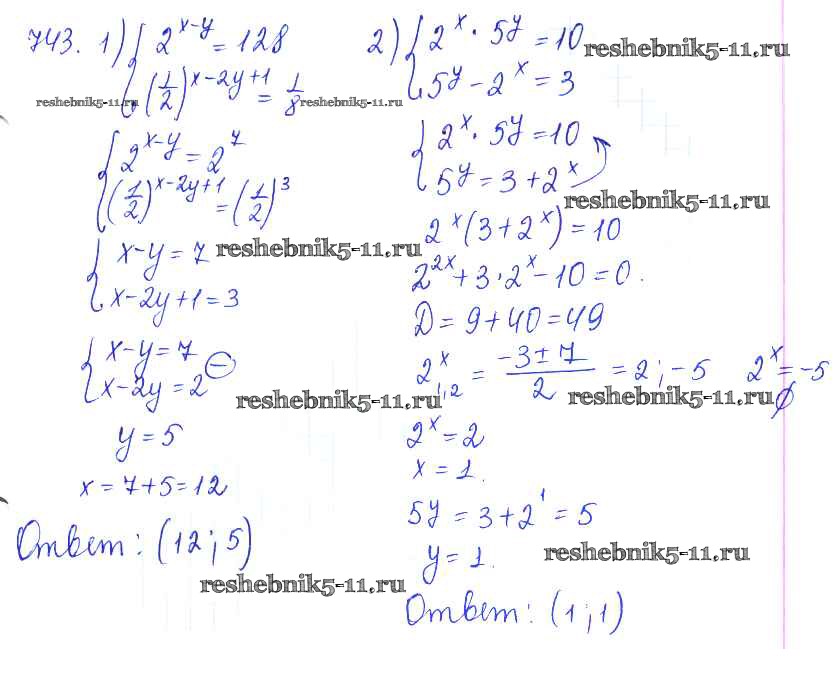 743. 1) { 2^(x-y) = 128
(1/2)^(x-2y+1) = 1/8
reshebnik5-11.ru
reshebnik5-11.ru
{ 2^(x-y) = 2^7
(1/2)^(x-2y+1) = (1/2)^3
{ x-y=7
reshebnik5-11.ru
x-2y+1=3
{ x-y=7
x-2y=2 ⊖
reshebnik5-11.ru
y=5
x=7+5=12
Ответ: (12;5)
reshebnik5-11.ru
2) { 2^x · 5^y = 10
reshebnik5-11.ru
5^y - 2^x = 3
{ 2^x · 5^y = 10
5^y = 3+2^x
reshebnik5-11.ru
2^x(3+2^x)=10
2^(2x)+3·2^x-10=0.
D=9+40=49
2^x_1,2 = (-3±7)/2 = 2; -5 2^x=-5
reshebnik5-11.ru ∅
2^x=2
x=1.
5^y = 3+2^1 = 5
reshebnik5-11.ru
y=1.
Ответ: (1;1)